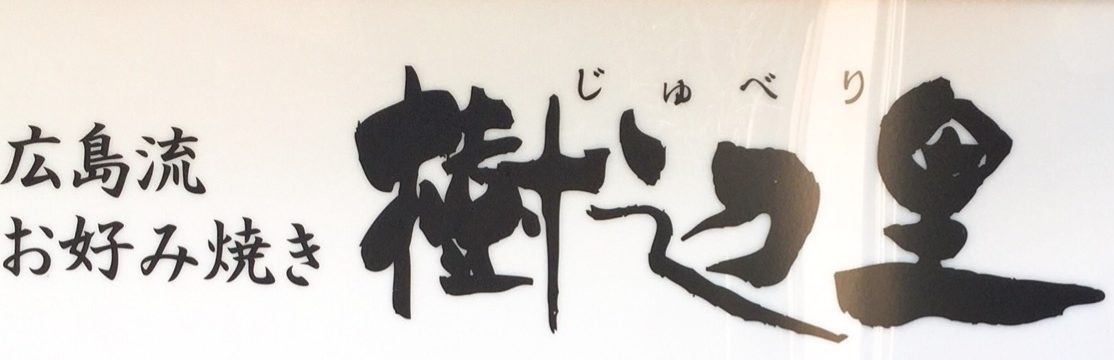 広島流
お好み焼き
じゅべり
樹辺里